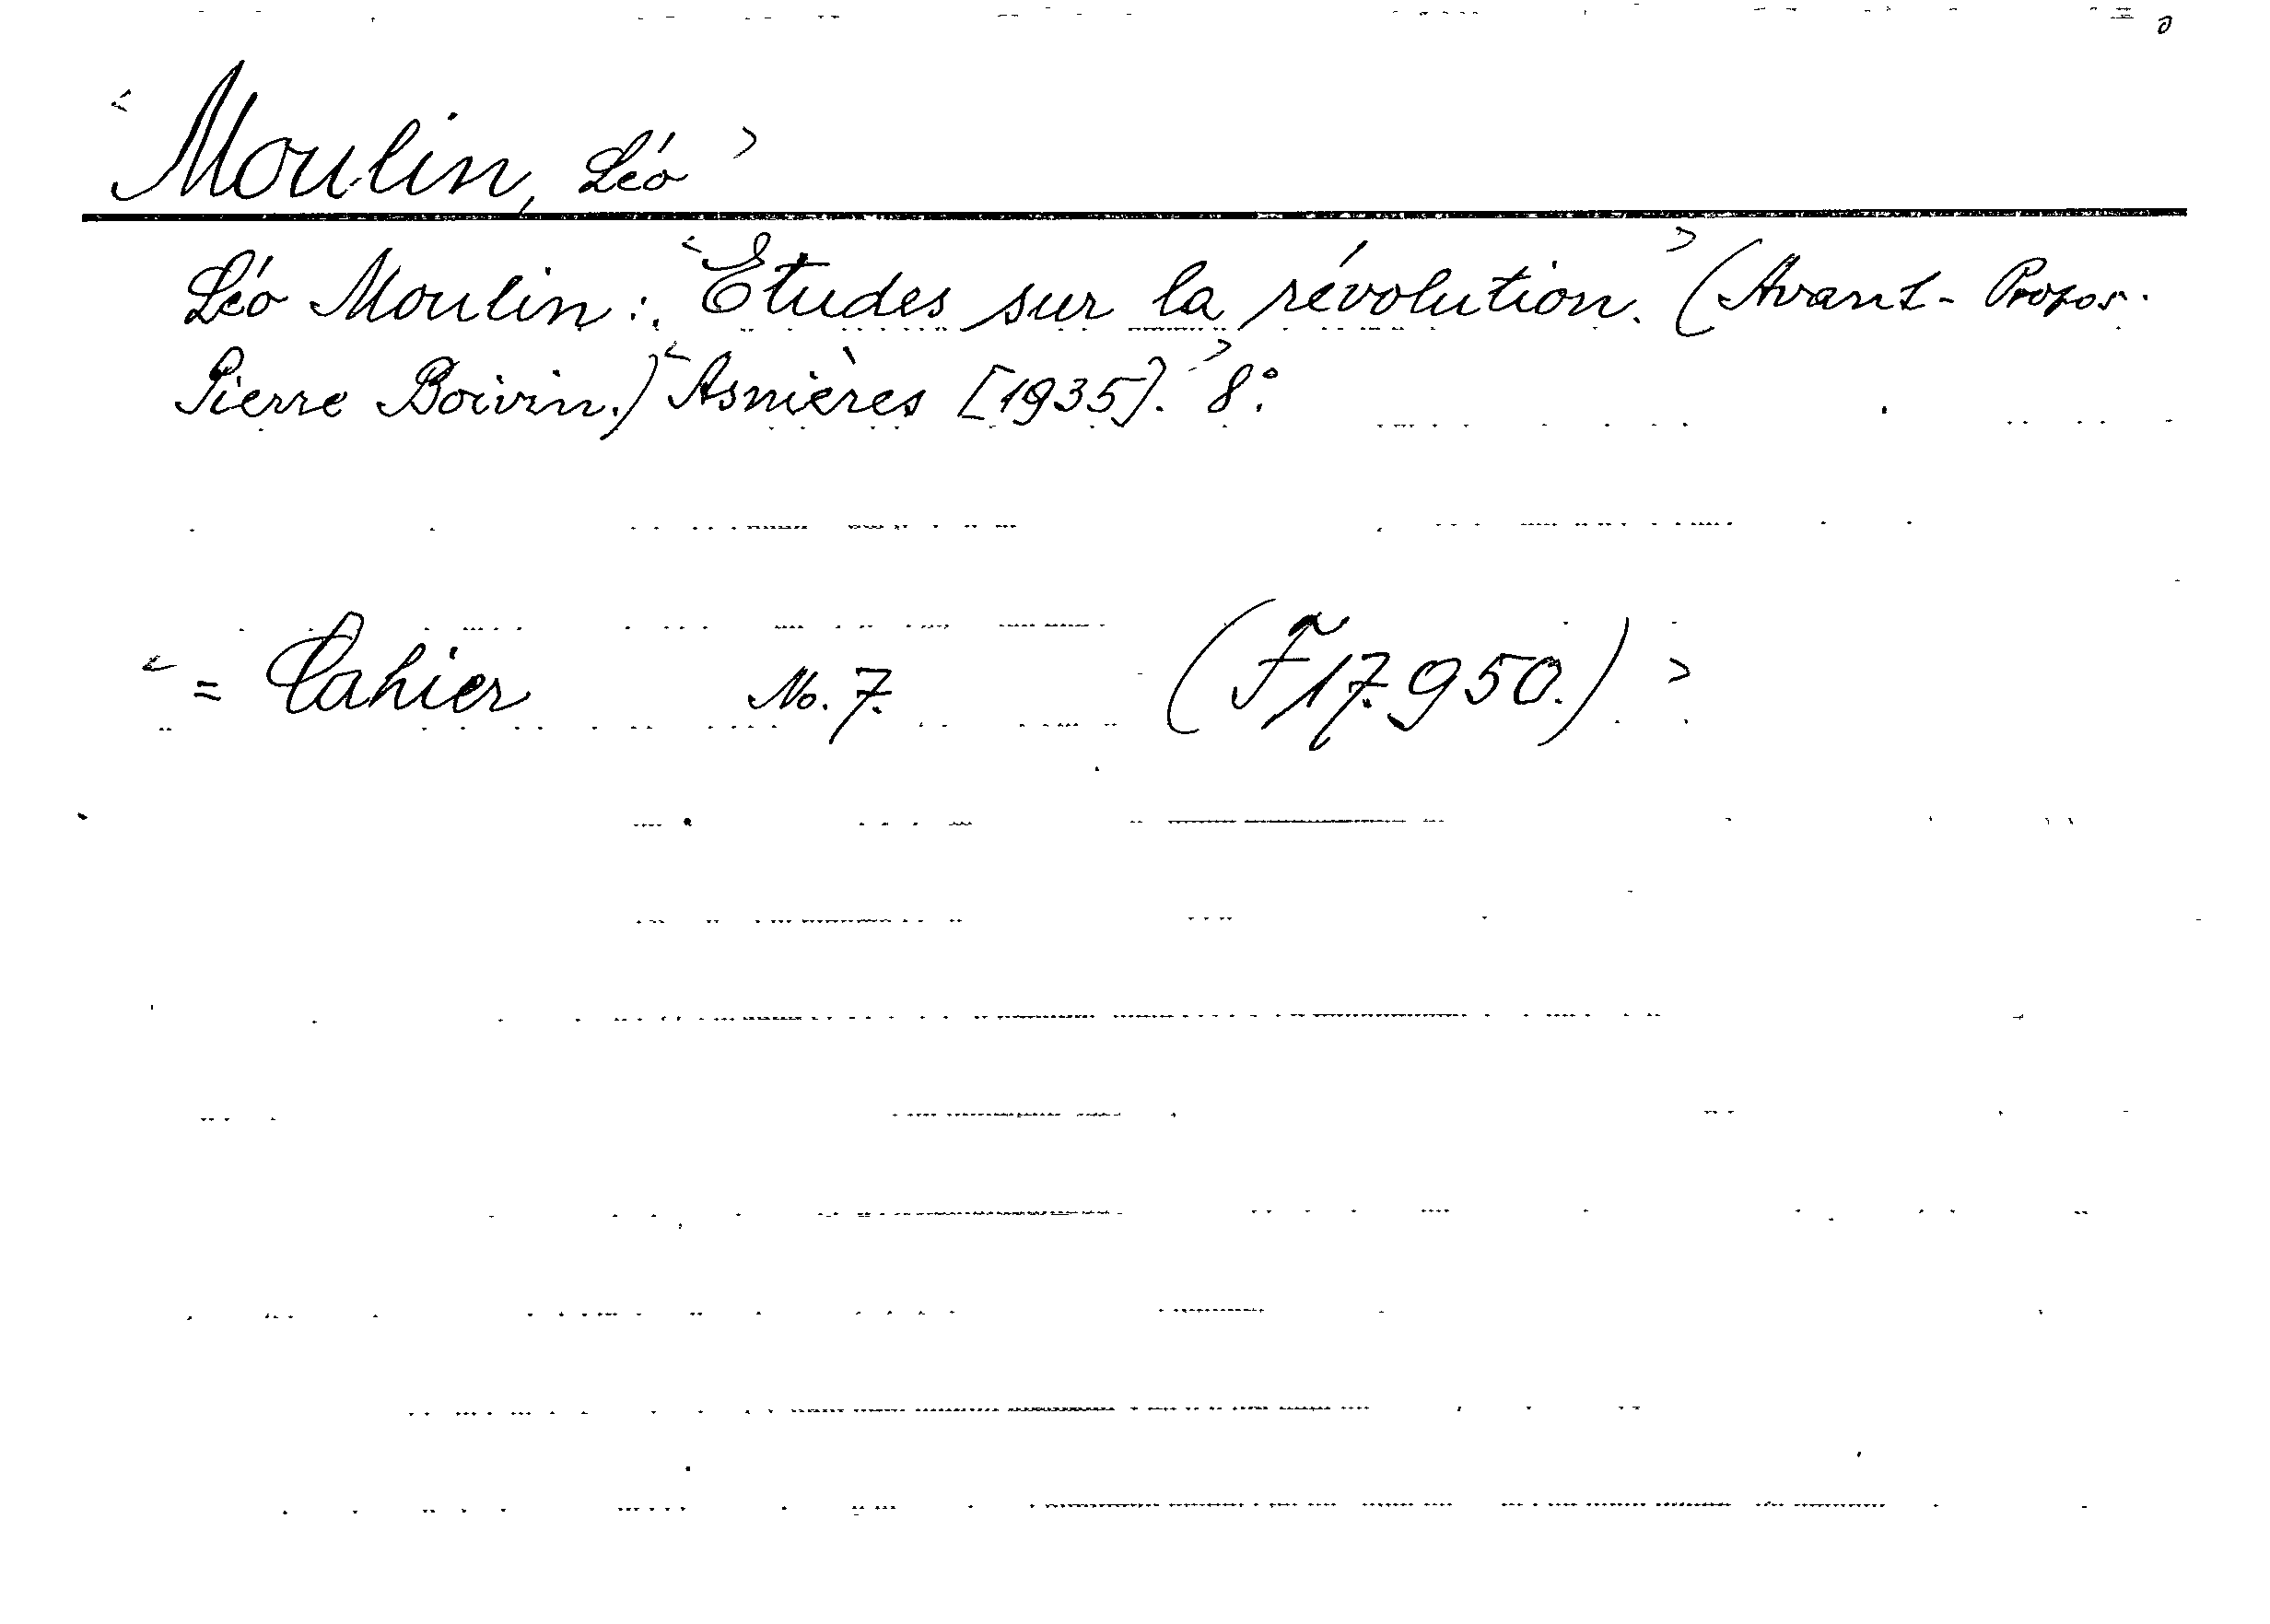 <Moulin, Léo>
Léo Moulin: <Etudes sur la révolution.> (Avant-Propos.
Pierre Boivin.) <Asnières [1935].> 8°.
<= Cahier No. 7. (F 17.950.)>